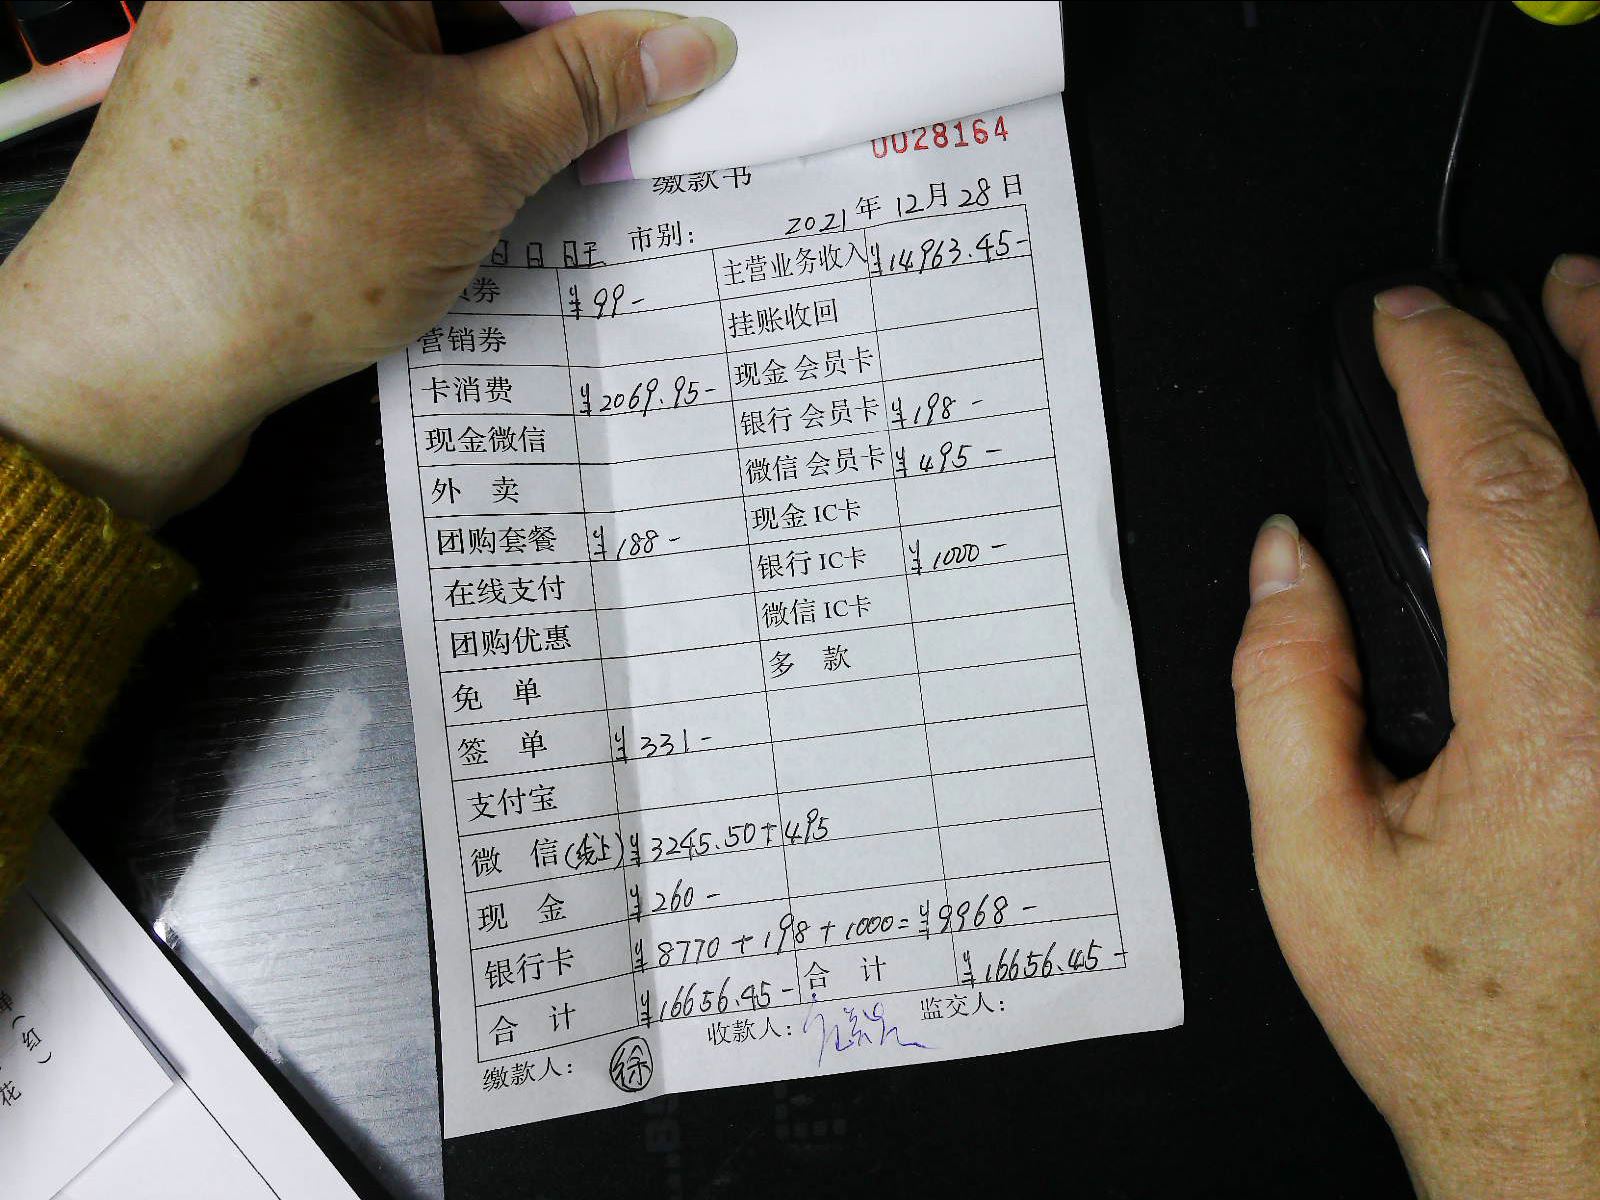 0028164
缴款书
市别： 2021年12月28日
券 ¥99- 主营业务收入 ¥14963.45-
营销券 挂账收回
卡消费 ¥2069.95- 现金 会员卡
现金微信 银行 会员卡 ¥198-
外 卖 微信 会员卡 ¥495-
团购套餐 ¥188- 现金 IC卡
在线支付 银行 IC卡 ¥1000-
团购优惠 微信 IC卡
免 单 多 款
签 单 ¥331-
支付宝
微 信(线上) ¥3245.50+495
现 金 ¥260-
银行卡 ¥8770+198+1000=¥9968-
合 计 ¥16656.45- 合 计 ¥16656.45-
缴款人： 徐 收款人： 监交人：
红
花